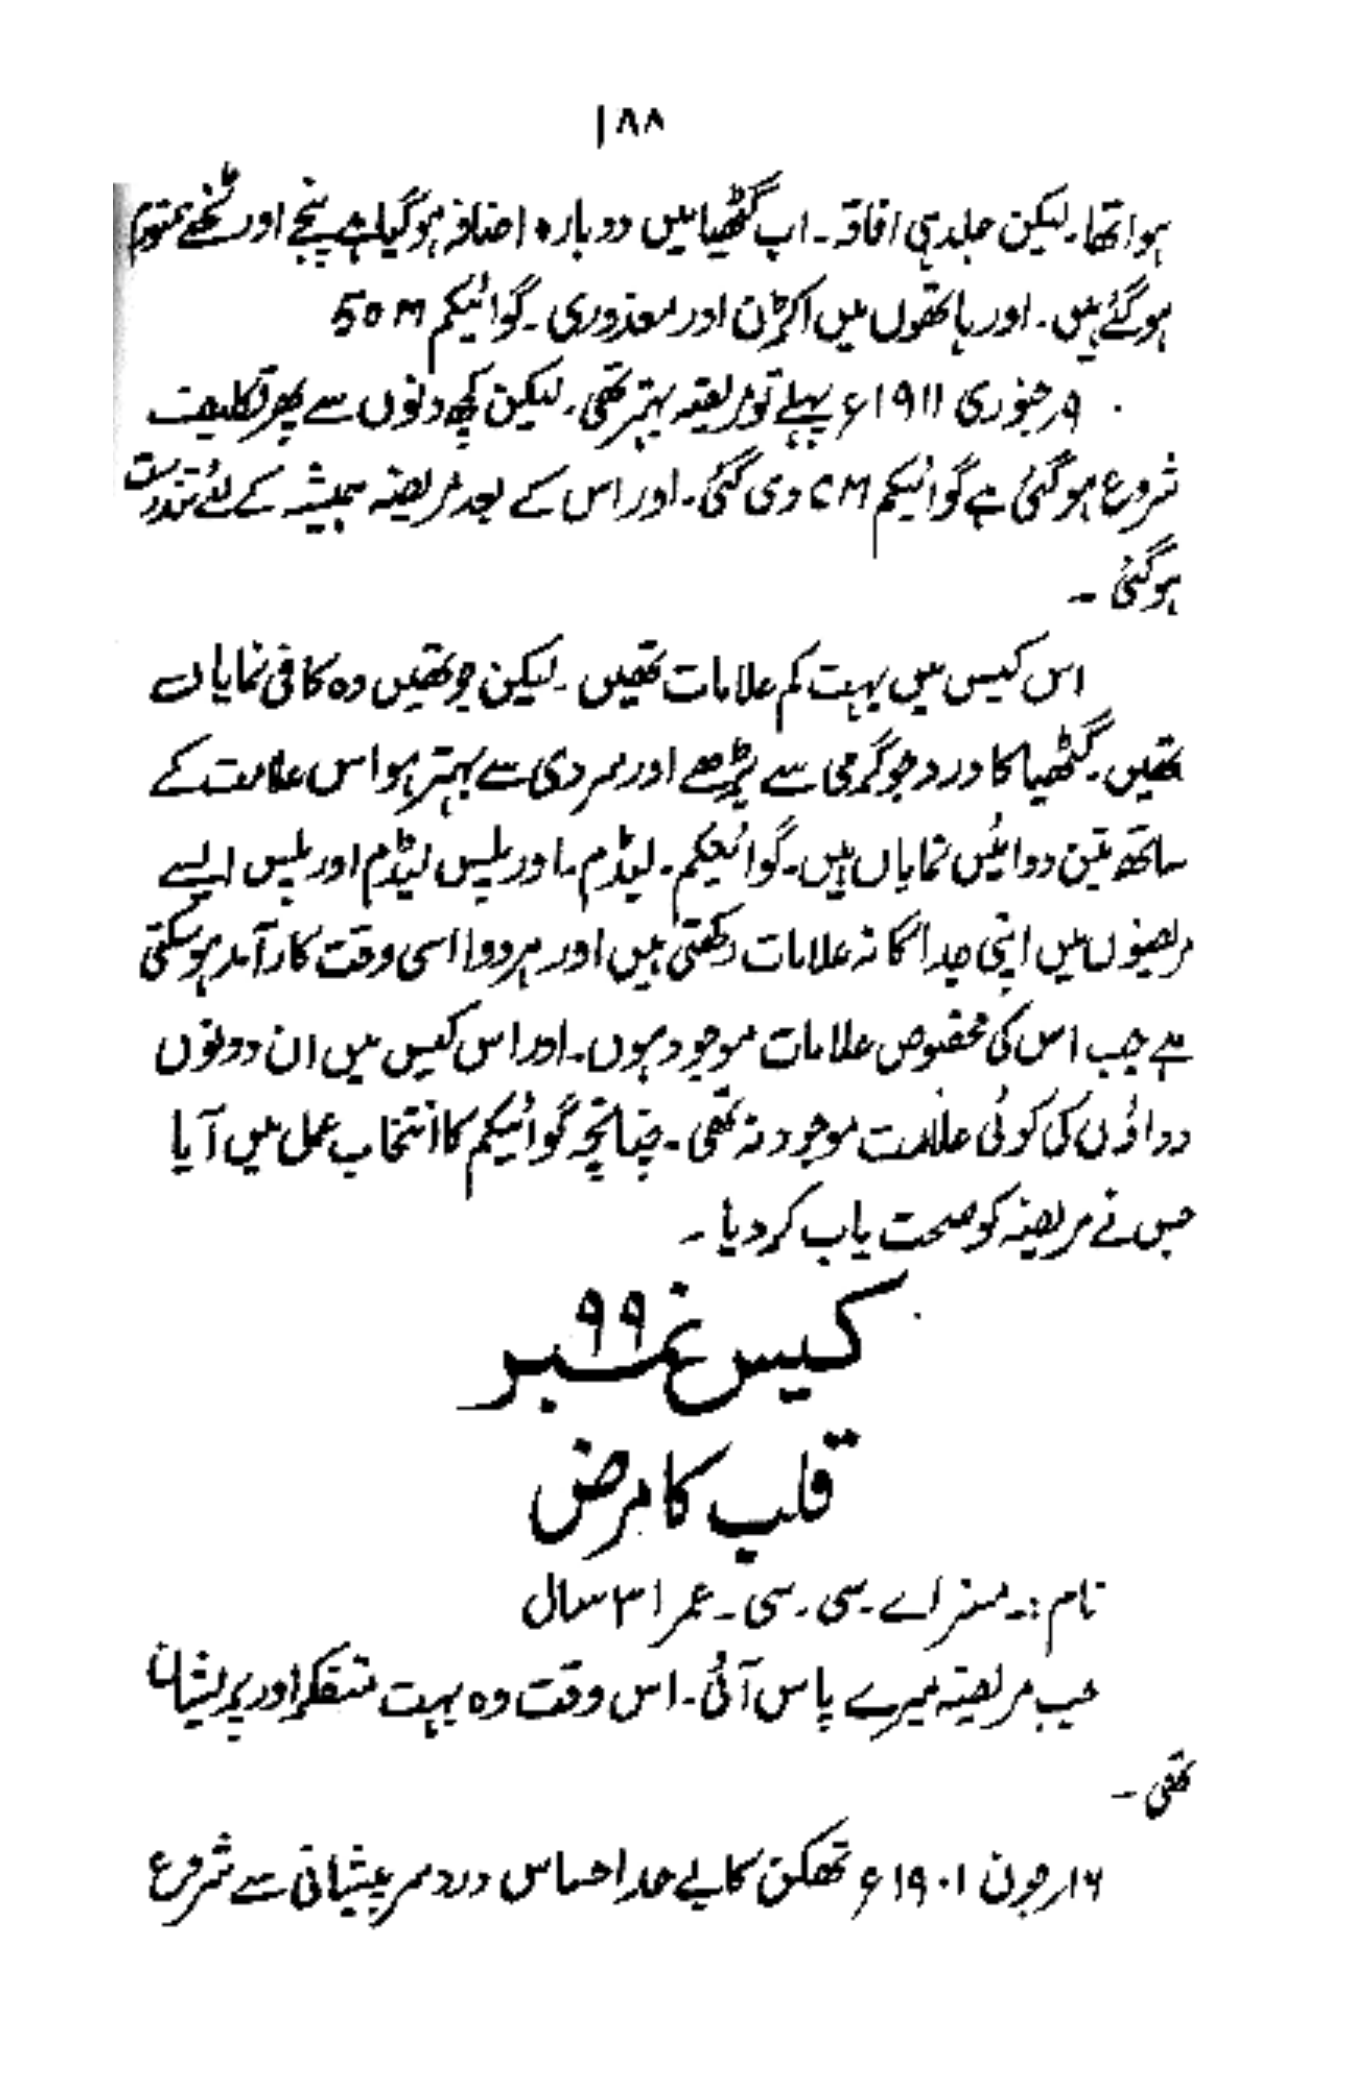 ۱۸۸
ہوا تھا۔ لیکن جلد ہی افاقہ۔ اب گٹھیا میں دوبارہ اضافہ ہوگیا ہے پنجے اور ٹخنے متورم
ہوگئے ہیں۔ اور ہاتھوں میں اکڑن اور معذوری۔ گوائیکم 50M
۹ر جنوری ۱۹۱۱ء پہلے تو مریضہ بہتر تھی۔ لیکن کچھ دنوں سے پھر تکلیف
شروع ہوگئی ہے گوائیکم CM دی گئی۔ اور اس کے بعد مریضہ ہمیشہ کے لئے تندرست
ہوگئی ۔
اس کیس میں بہت کم علامات تھیں۔ لیکن جو تھیں وہ کافی نمایاں
تھیں۔ گٹھیا کا درد جو گرمی سے بڑھے اور سردی سے بہتر ہو اس علامت کے
ساتھ تین دوائیں نمایاں ہیں۔ گوائیکم۔ لیڈم۔ اور پلس لیڈم اور پلس ایسے
مریضوں میں اپنی جداگانہ علامات رکھتی ہیں اور ہر دوا اسی وقت کارآمد ہوسکتی
ہے جب اس کی مخصوص علامات موجود ہوں۔ اور اس کیس میں ان دونوں
دواؤں کی کوئی علامت موجود نہ تھی۔ چنانچہ گوائیکم کا انتخاب عمل میں آیا
جس نے مریضہ کو صحت یاب کردیا ۔
کیس نمبر ۹۹
قلب کا مرض
نام :۔ مسز اے۔ سی۔ سی۔ عمر ۳۱ سال
جب مریضہ میرے پاس آئی۔ اس وقت وہ بہت متفکر اور پریشان
تھی ۔
۱۶ر جون ۱۹۰۱ء تھکن کا بے حد احساس درد سر پیشانی سے شروع